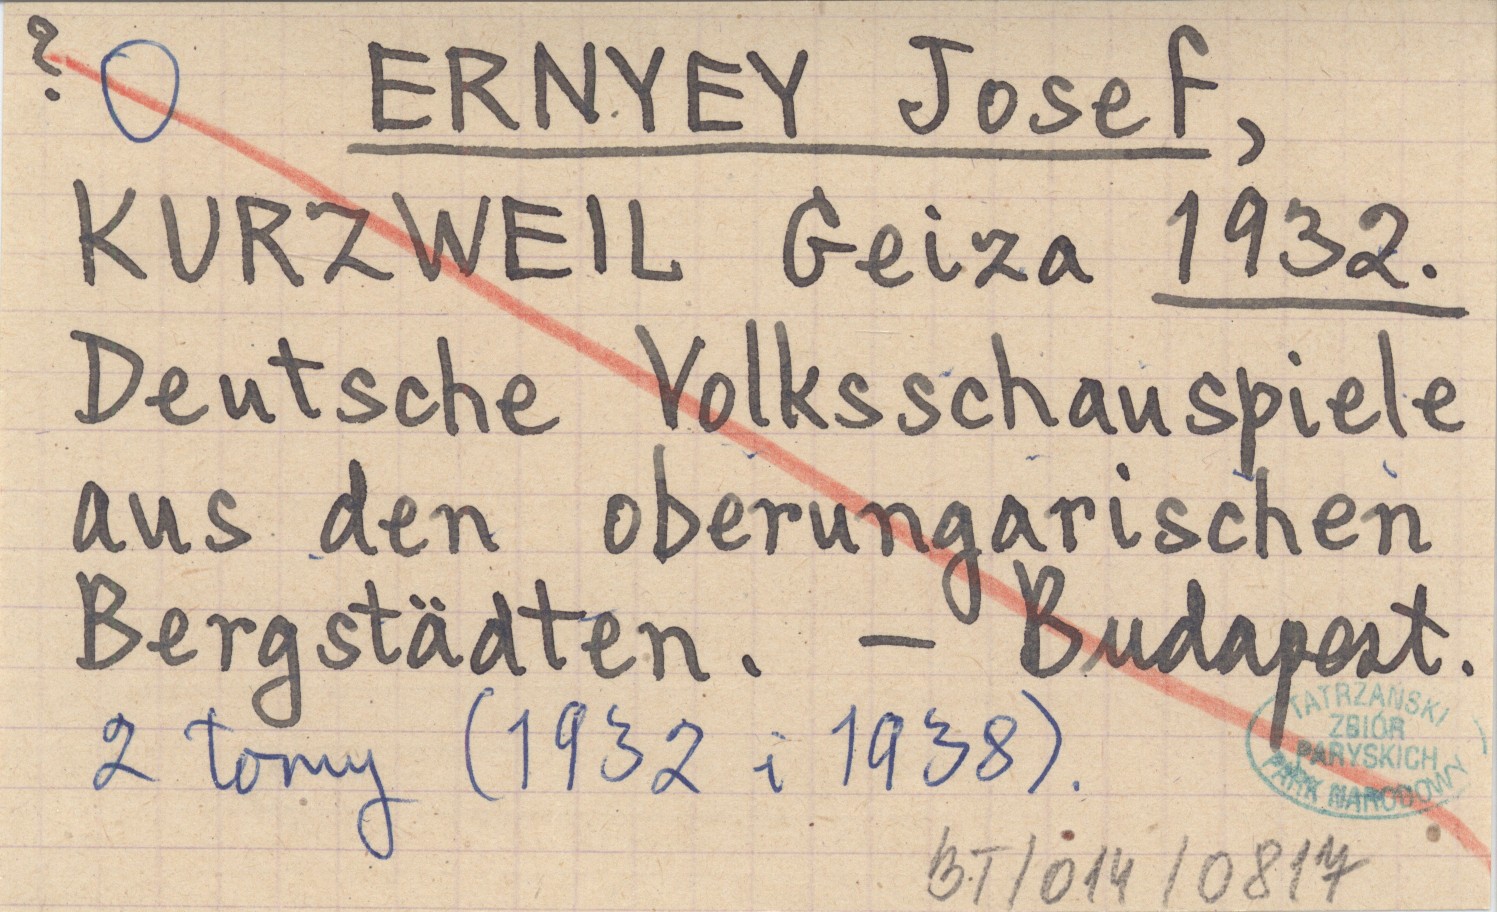 ? ERNYEY Josef,
KURZWEIL Geiza 1932.
Deutsche Volksschauspiele
aus den oberungarischen
Bergstädten. — Budapest.
2 tomy (1932 i 1938).
TATRZAŃSKI
ZBIÓR
PARYSKICH
PARK NARODOWY
BT/014/0817